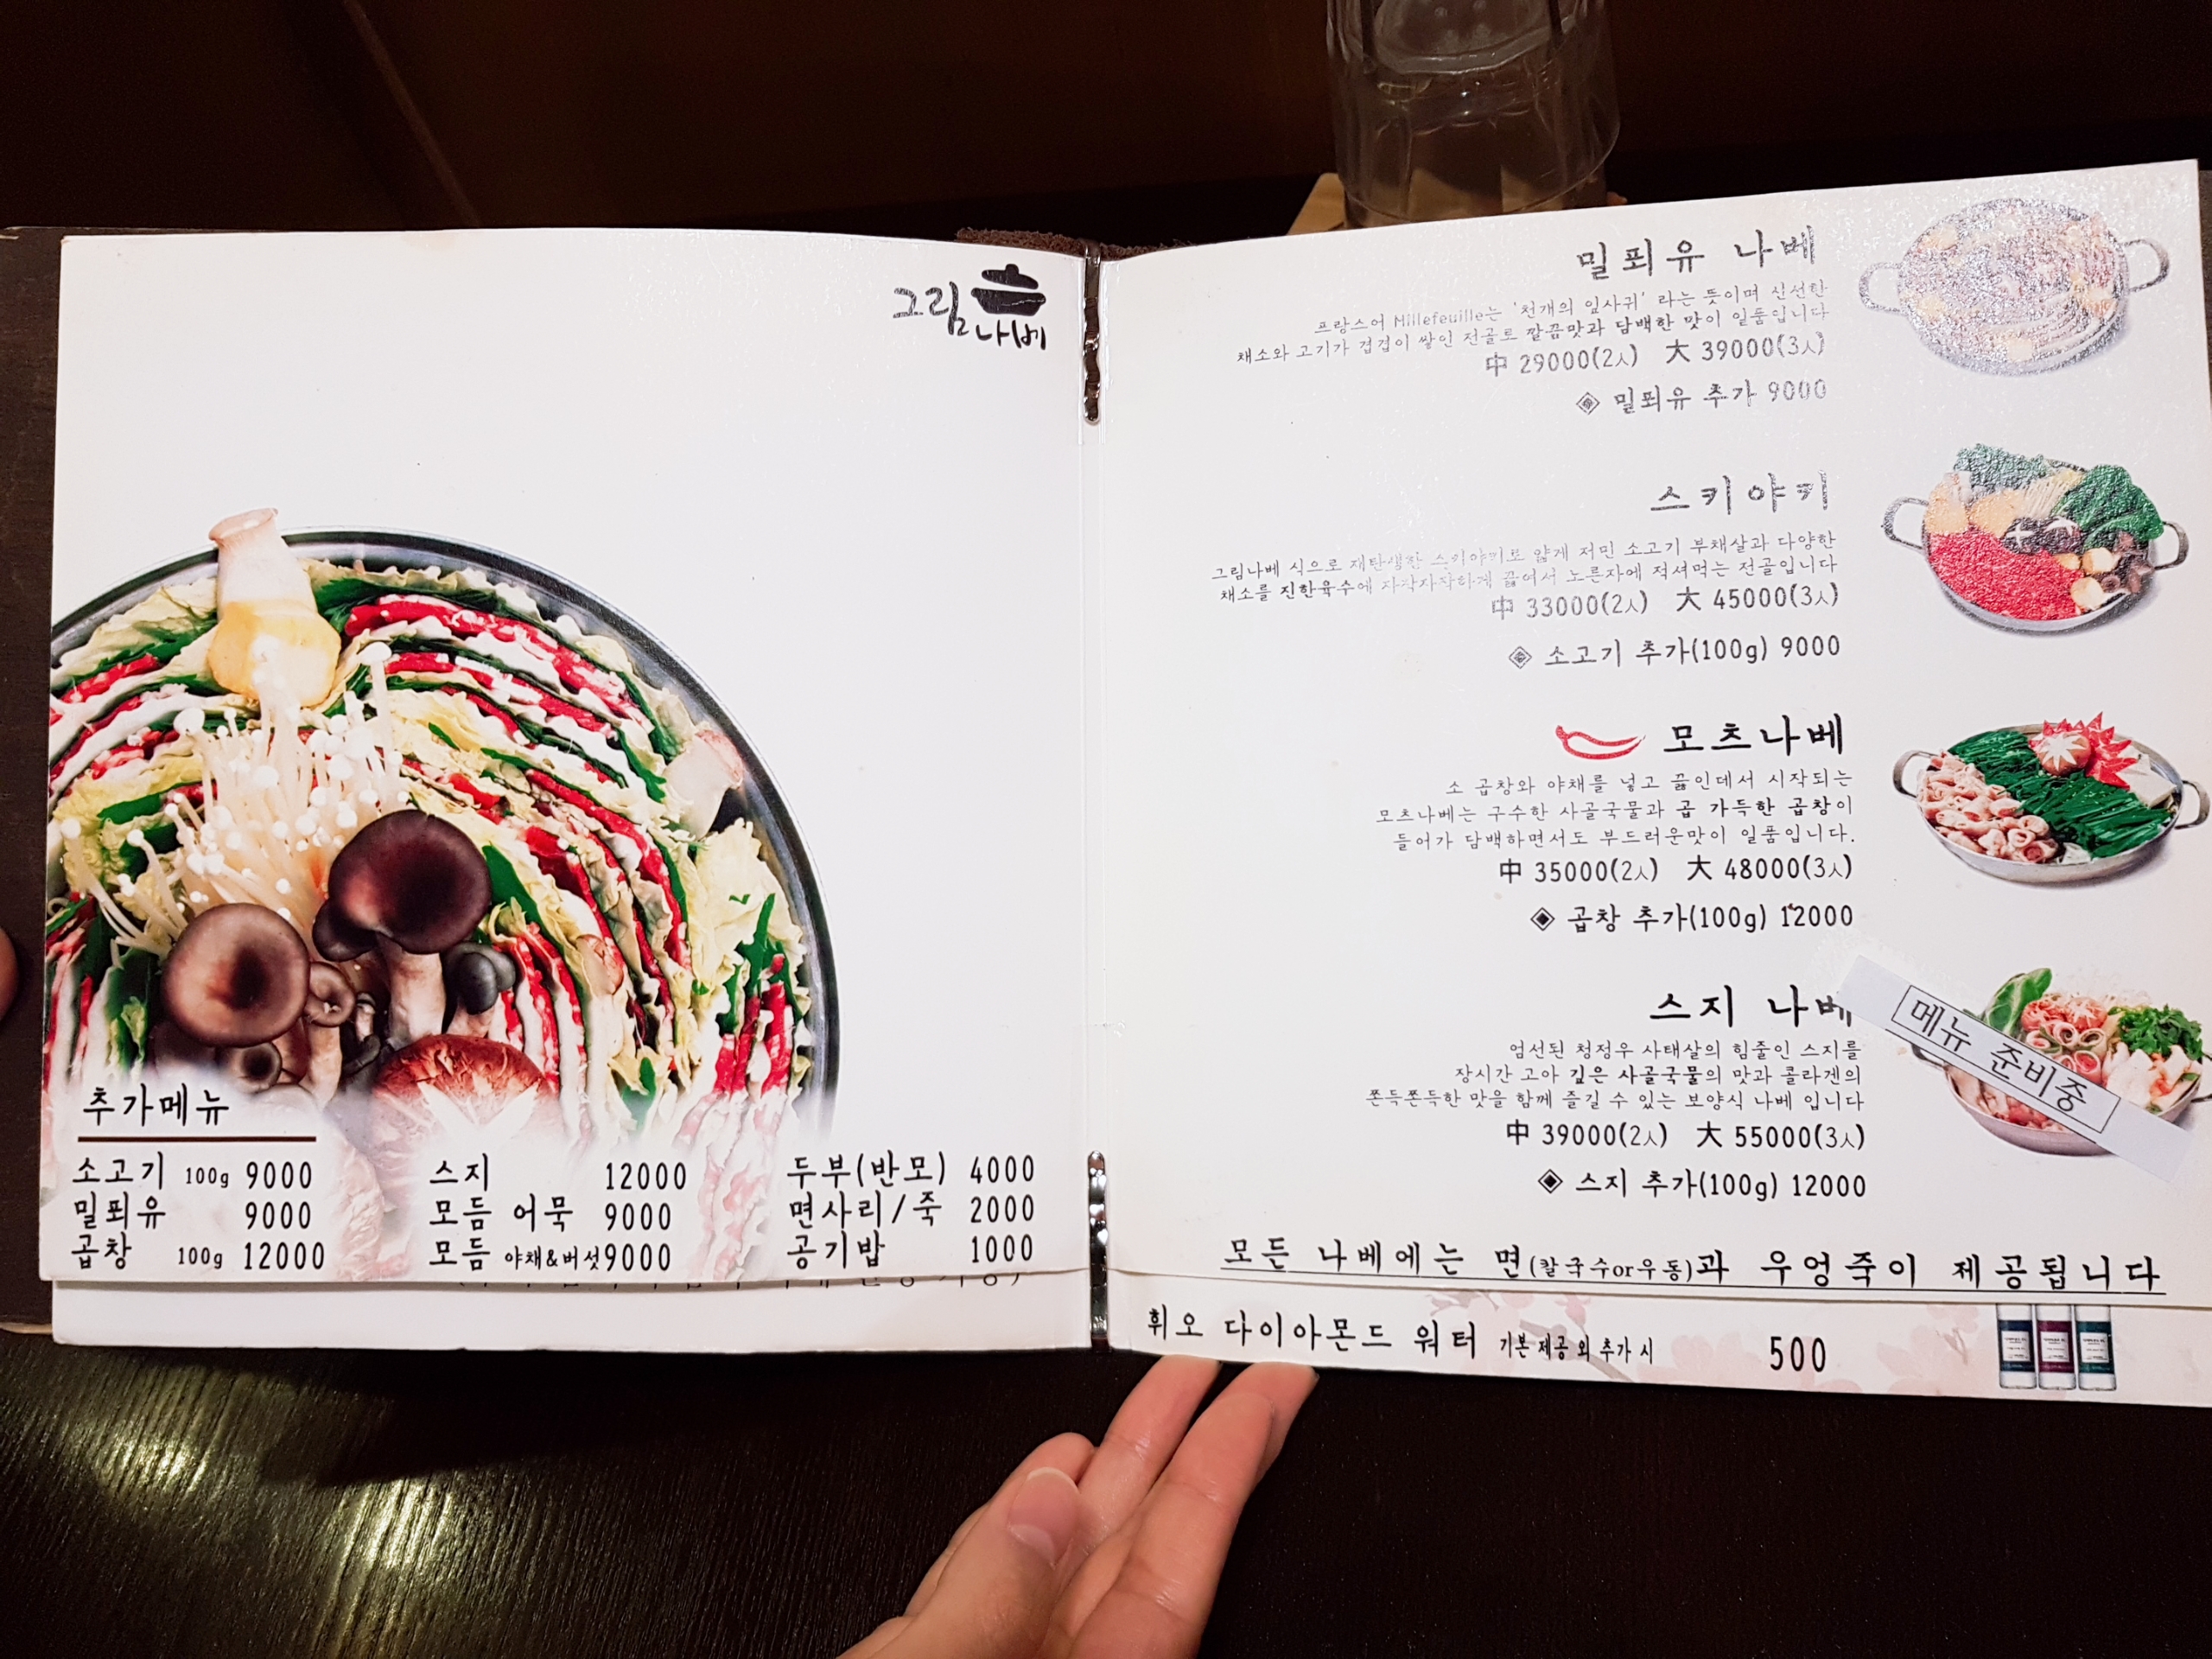 그림
나베
추가메뉴
소고기 100g 9000
밀푀유 9000
곱창 100g 12000
스지 12000
모듬 어묵 9000
모듬 야채&버섯 9000
두부(반모) 4000
면사리/죽 2000
공기밥 1000
밀푀유 나베
프랑스어 Millefeuille는 '천개의 잎사귀' 라는 뜻이며 신선한
채소와 고기가 겹겹이 쌓인 전골로 깔끔맛과 담백한 맛이 일품입니다
中 29000(2人) 大 39000(3人)
밀푀유 추가 9000
스키야키
그림나베 식으로 재탄생한 스키야끼로 얇게 저민 소고기 부채살과 다양한
채소를 진한육수에 자작자작하게 끓여서 노른자에 적셔먹는 전골입니다
中 33000(2人) 大 45000(3人)
소고기 추가(100g) 9000
모츠나베
소 곱창와 야채를 넣고 끓인데서 시작되는
모츠나베는 구수한 사골국물과 곱 가득한 곱창이
들어가 담백하면서도 부드러운맛이 일품입니다.
中 35000(2人) 大 48000(3人)
곱창 추가(100g) 12000
스지 나베
메뉴 준비중
엄선된 청정우 사태살의 힘줄인 스지를
장시간 고아 깊은 사골국물의 맛과 콜라겐의
쫀득쫀득한 맛을 함께 즐길 수 있는 보양식 나베 입니다
中 39000(2人) 大 55000(3人)
스지 추가(100g) 12000
모든 나베에는 면(칼국수or우동)과 우엉죽이 제공됩니다
휘오 다이아몬드 워터 기본 제공 외 추가 시 500